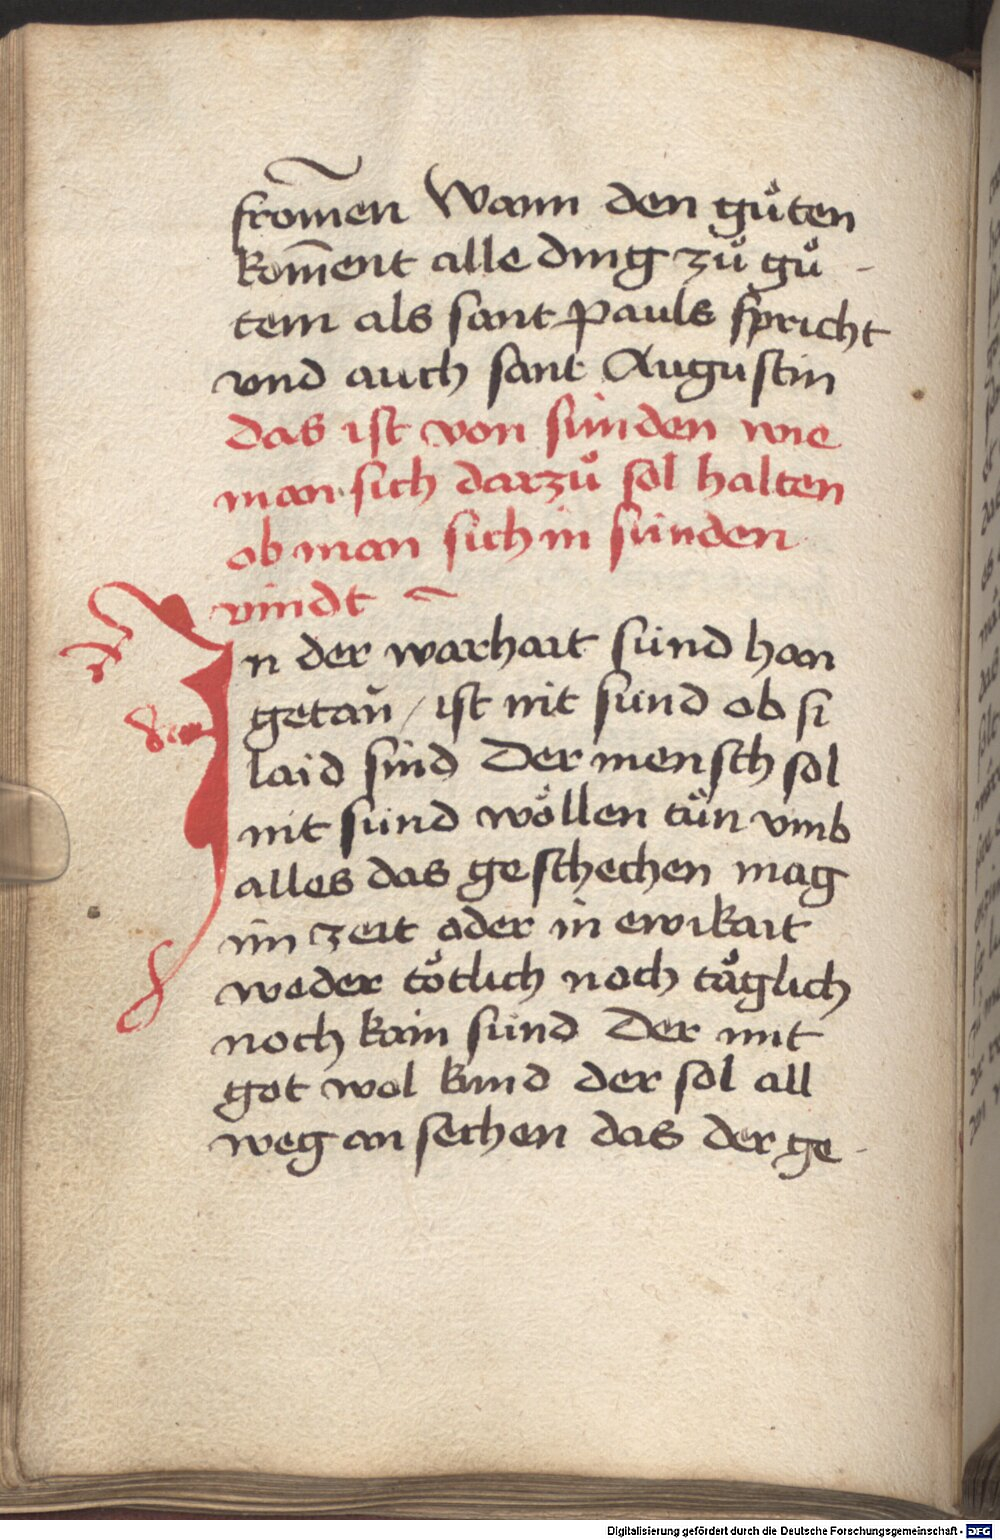 from̄en Wann den gůten
kom̄ent alle ding zů gů -
tem als sant Pauls spricht
vnd auch sant Augustin
das ist von sünden wie
man sich darzů sol halten
ob man sich in sünden
vindt ~
In der warhait sünd han
getān / ist nit sünd ob si
laid sind Der mensch sol
nit sünd wöllen tůn vmb
alles das geschechen mag
im zeit oder in ewikait
weder tötlich noch täglich
noch kain sünd Der mit
got wol kund der sol all
weg an sechen das der ge -
Digitalisierung gefördert durch die Deutsche Forschungsgemeinschaft - DFG